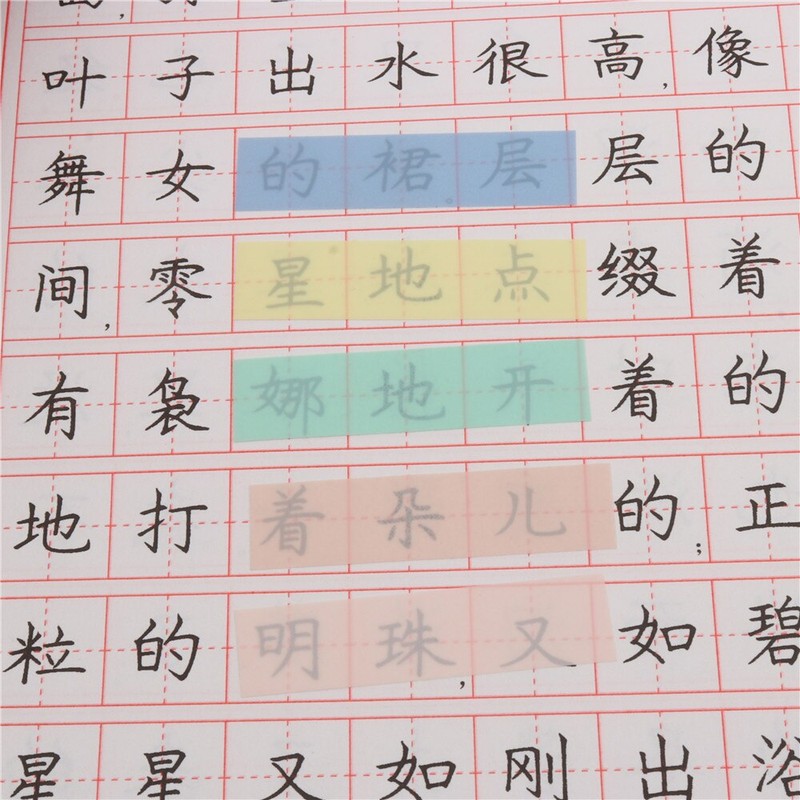 叶子出水很高,像
舞女的裙。层层的
间,零星地点缀着
有袅娜地开着的
地打着朵儿的;正
粒的明珠,又如碧
星星又如刚出浴